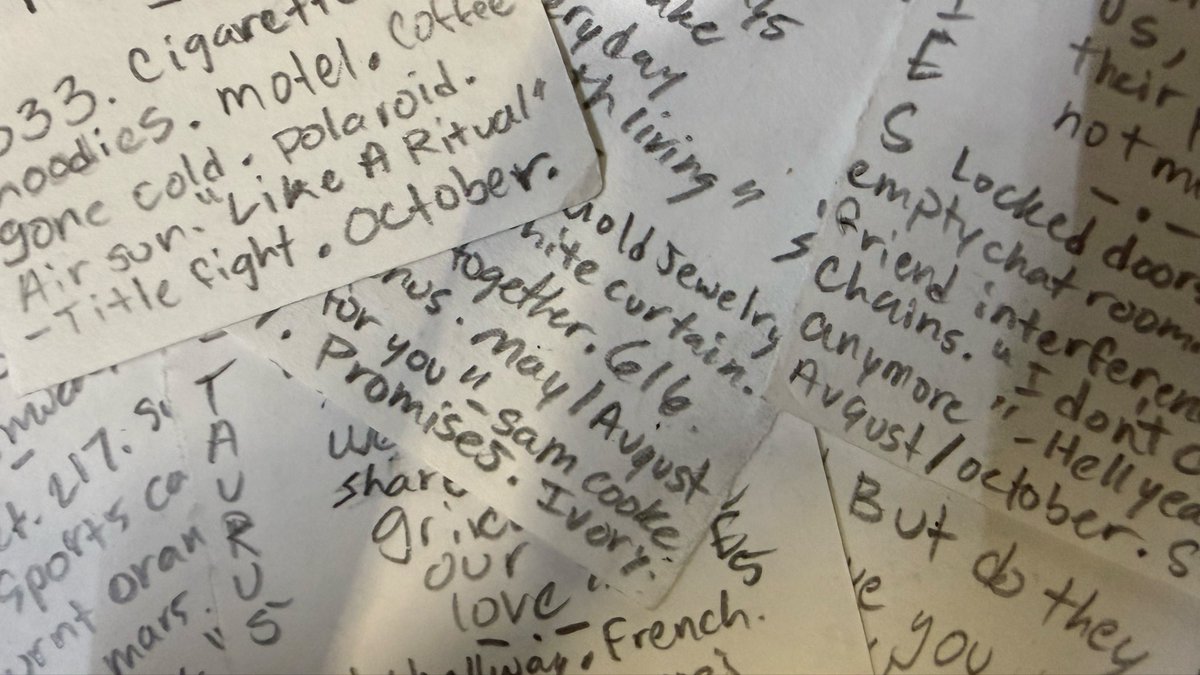 033. Cigarett
hoodies. motel. Coffee
gone cold. polaroid.
Air sun. "Like A Ritual"
-Title fight. October.
ery day
living "
Gold Jewelry
hite curtain.
together. 616.
nus. may/August
for you" - Sam Cooke.
Promises. Ivory.
I
E
S
us,
their
not m
- . -
Locked doors
empty chat room
friend interferen
Chains. "I don't c
anymore" - Hell yea
August/october. S
- mwa
ct. 217. S
Sports ca
urnt oran
mars. "
T
A
U
R
U
S
We
share
our
love"
- . -
hallway. French.
But do they
ve you